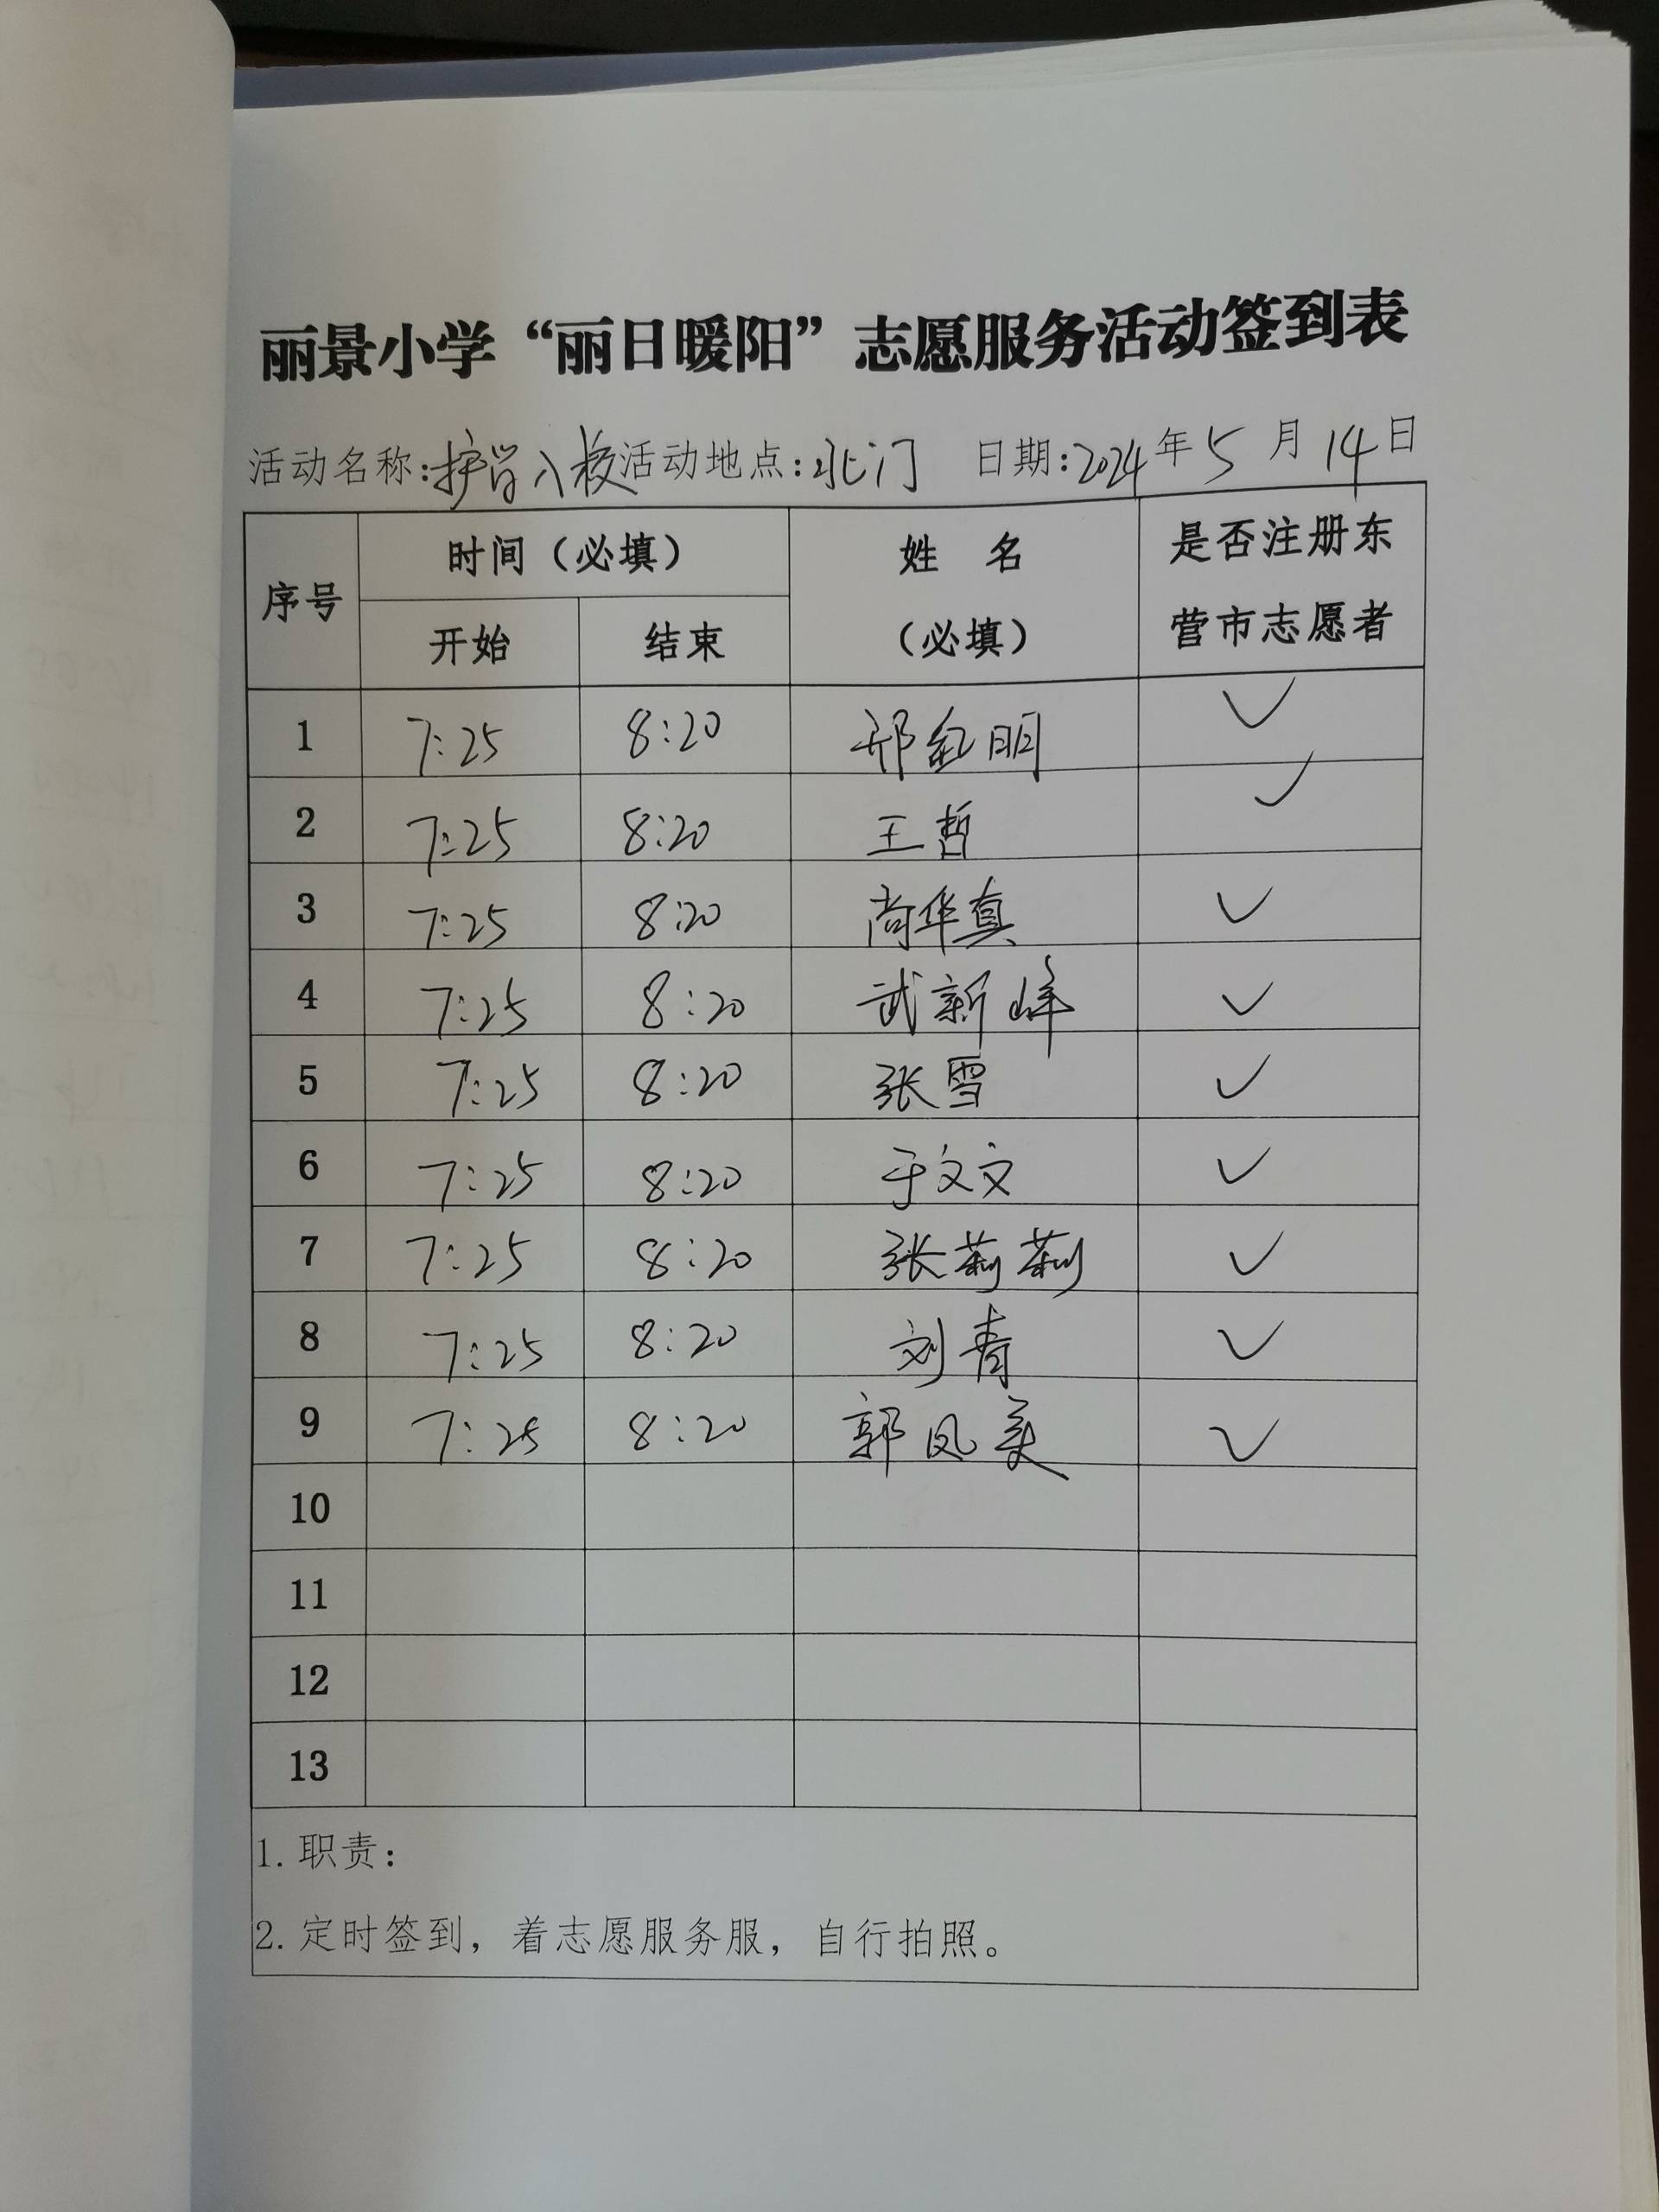 丽景小学“丽日暖阳”志愿服务活动签到表
活动名称:护学入校 活动地点:北门 日期:2024年5月14日
序号 时间（必填） 姓 名（必填） 是否注册东营市志愿者
开始 结束
1 7:25 8:20 邢红明 ✓
2 7:25 8:20 王哲 ✓
3 7:25 8:20 尚华真 ✓
4 7:25 8:20 武新峰 ✓
5 7:25 8:20 张雪 ✓
6 7:25 8:20 于文文 ✓
7 7:25 8:20 张莉莉 ✓
8 7:25 8:20 刘青 ✓
9 7:25 8:20 郭凤美 ✓
10
11
12
13
1. 职责：
2. 定时签到，着志愿服务服，自行拍照。